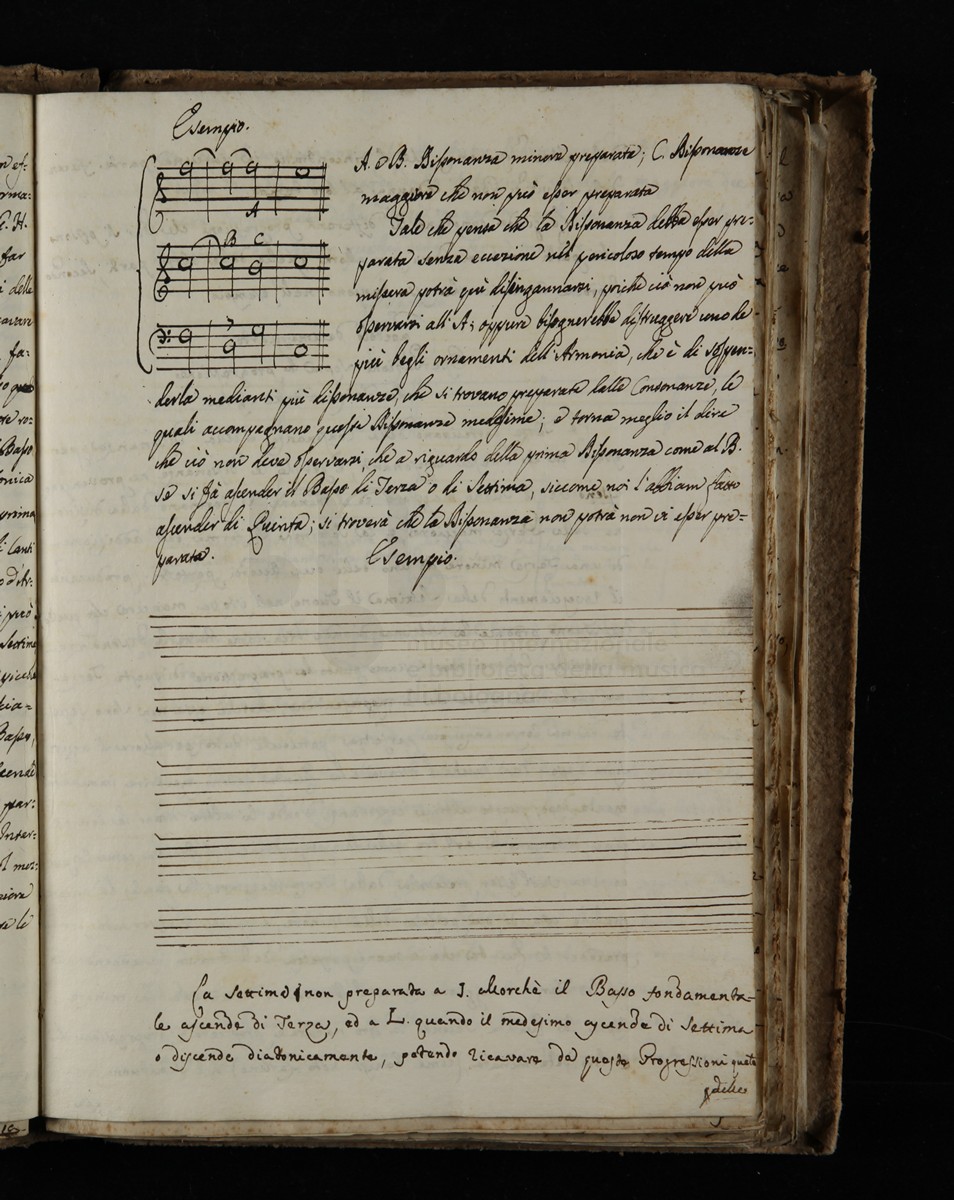 Esempio.
A. e B. Dissonanza minore preparata; C. Dissonanza
maggiore che non può esser preparata
Tale che pensa che la Dissonanza debba esser pre-
parata senza eccezione nel pericoloso tempo della
missera potrà quì disingannarsi, poichè ciò non può
osservarsi all'A; oppure bisognerebbe distruggere uno de
più begli ornamenti dell'Armonia, che è di sospen-
derla medianti più dissonanze, che si trovano preparate dalle Consonanze, le
quali accompagnano queste Dissonanze medesime; e torna meglio il dire
che ciò non deve osservarsi, che a riguardo della prima Dissonanza come al B.
se si fà ascender il Basso di Terza o di Settima, siccome noi l'abbiam fatto
ascender di Quinta; si troverà che la Dissonanza non potrà non vi esser pre-
parata.
Esempio.
A
B C
7
museo internazionale
e biblioteca della musica
di bologna
La Settima non preparata a J. allorchè il Basso fondamenta-
le ascende di Terza, ed a L. quando il medesimo ascende di Settima
o discende diatonicamente, potendo ricavare da queste Progressioni
18